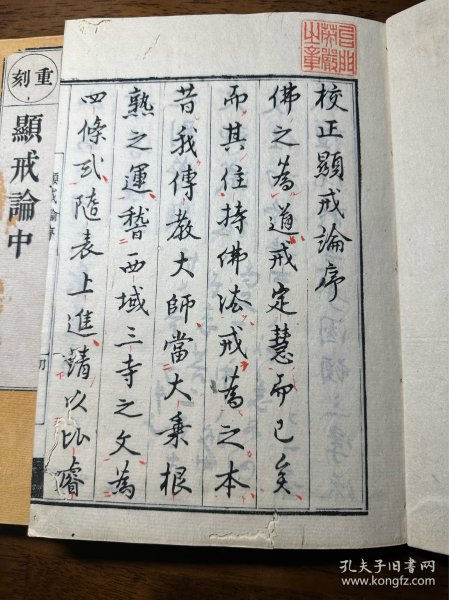 校正顯戒論序
佛之為道戒定慧而已矣
而其住持佛法戒為之本
昔我傳教大師當大乗根
熟之運稽西域三寺之文為
四條式隨表上進請以比睿
重刻
顯戒論中
孔夫子旧书网
www.kongfz.com